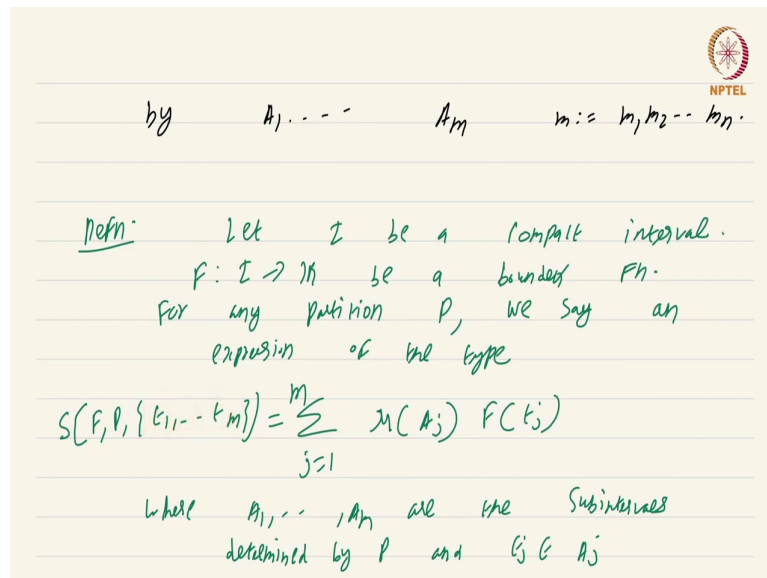 NPTEL
by A1.... Am m:= m1 m2 -- mn.
Defn: Let I be a compact interval.
F: I → ℝ be a bounded Fn.
For any partition P, we say an
expression of the type
S(F, P, {t1,.. tm}) = m∑j=1 μ(Aj) F(tj)
where A1,.. , Am are the subintervals
determined by P and tj ∈ Aj